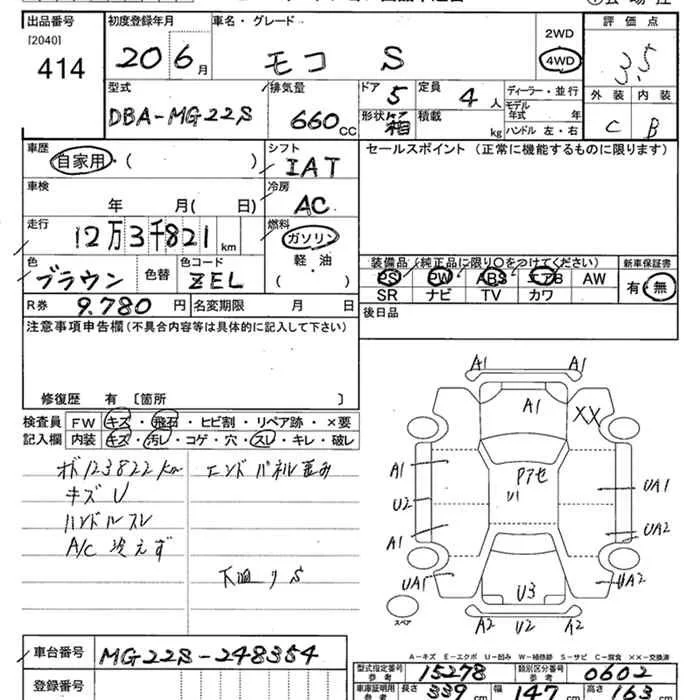 出品番号 初度登録年月 車名・グレード 評価点
[2040]
414 20 6月 モコ S 2WD 4WD 3.5
型式 排気量 ドア 定員 ディーラー・並行 外装 内装
DBA-MG22S 660CC 5 4人 モデル年式 年式
形状 箱 積載 kg ハンドル 左・右 C B
車歴 シフト セールスポイント (正常に機能するものに限ります)
自家用・( ) IAT
車検 冷房
年 月( 日) AC
走行 燃料
12万3千821km ガソリン
軽・油
( )
色 色替 色コード 装備品 (純正品に限り○をつけてください) 新車保証書
ブラウン ZEL PS PW ABS エアB AW 有・無
SR ナビ TV カワ
R券 9,780円 名変期限 月 日 後日品
注意事項申告欄 (不具合内容等は具体的に記入して下さい)
修復歴 有 〔箇所 〕
検査員 FW キズ・飛石・ヒビ割・リペア跡・×要
記入欄 内装 キズ・汚レ・コゲ・穴・スレ・キレ・破レ
123822km エンドパネル歪み
キズ U
ハンドルスレ
A/C 冷えず
下廻りS
A1 A1
A1 XX
A1 Pアセ
U1 UA1
U2
A1 UA2
UA1 U3 UA2
スペア A2 U2 A2
A-キズ E-エクボ U-凹み W-補修跡 S-サビ C-腐食 XX-交換済
車台番号 MG22S-248354
型式指定番号 参考 15278 類別区分番号 参考 0602
登録番号
車庫証明用 参考 長さ 339cm 幅 147cm 高さ 163cm